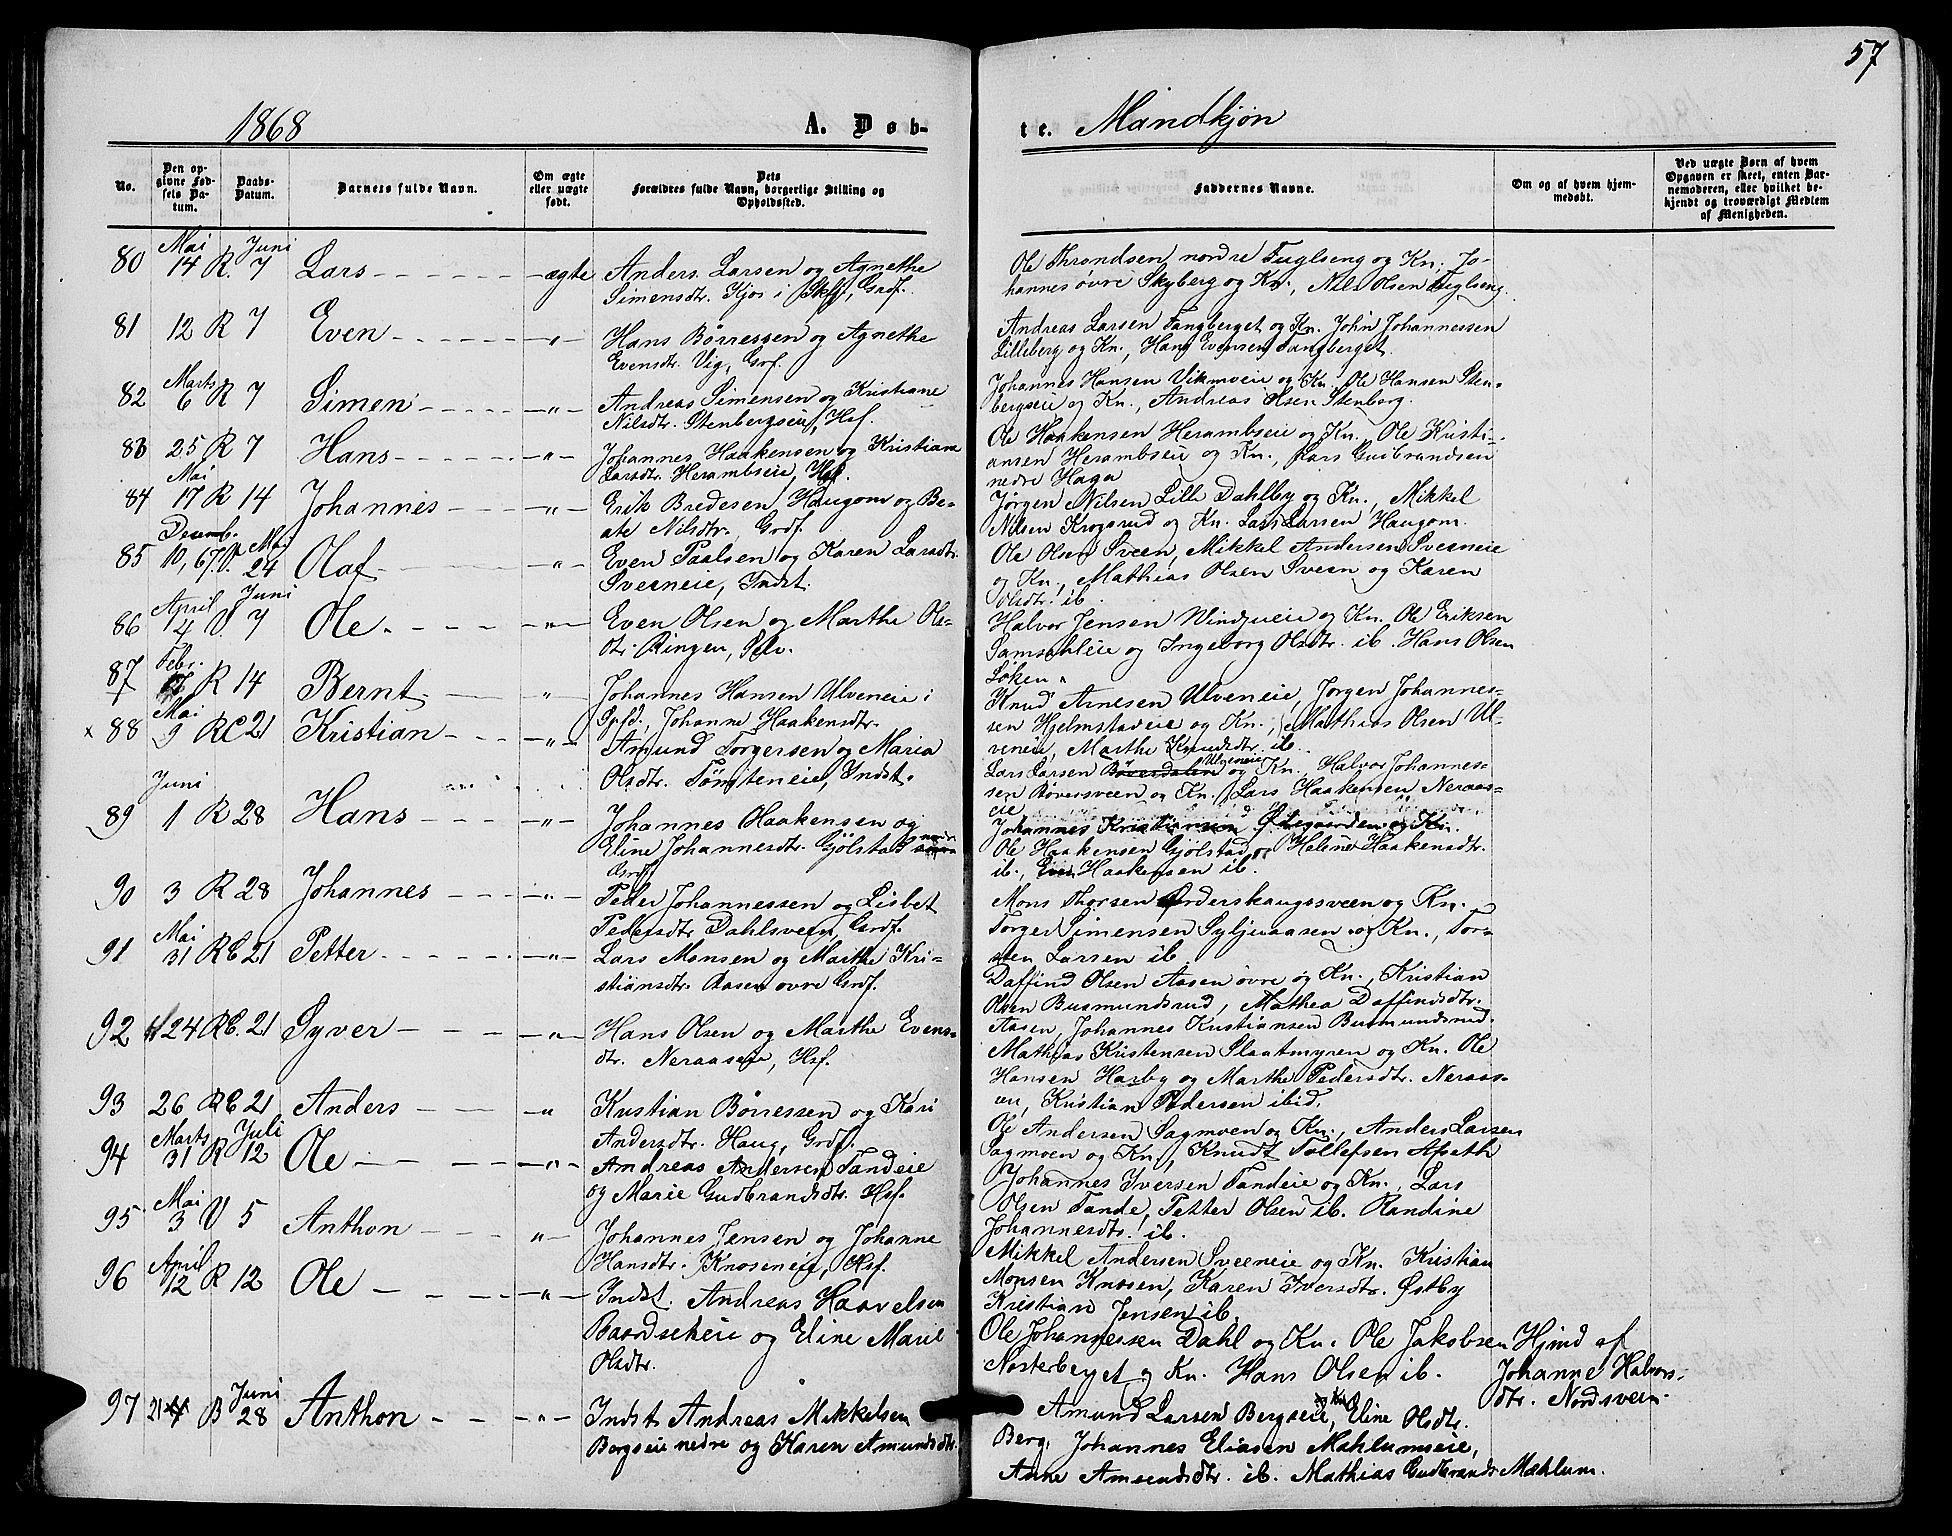 57
1868 A. Døb-
te. Mandkjøn
No.
Den opgivne Fødsels Datum.
Daabs-Datum.
Barnets fulde Navn.
Om ægte eller uægte født.
Dets Forældres fulde Navn, borgerlige Stilling og Opholdssted.
Faddernes Navne.
Om og af hvem hjemmedøbt.
Ved uægte Børn af hvem Opgaven er skeet, enten Barnemoderen, eller hvilket bekjendt og troværdigt Medlem af Menigheden.
80 Mai 14 R. Juni 7 Lars ægte Anders Larsen og Agnethe
Simensdtr. Kjos i Skbg, Grdf.
81 12 R 7 Even " Hans Børresen og Agnethe
Evensdtr. Vig, Grf.
82 Marts 6 R 7 Simen " Andreas Simensen og Kristiane
Nilsdtr. Stenbergseie, Hsf.
83 25 R 7 Hans " Johannes Haakensen og Kristiane
Larsdtr. Herambseie, Hsf.
84 Mai 17 R 14 Johannes " Erik Bredesen Haugom og Be-
ate Nilsdtr., Grdf.
85 Decemb. 10, 67. V. Mai 24 Olaf " Even Paalsen og Karen Larsdtr.
Sveeneie, Indst.
86 April 14 V. Juni 7 Ole " Even Olsen og Marthe Ols-
dtr. Ringen, Selv.
87 Febr. R 14 Bernt " Johannes Hansen Ulveneie i
Spfd., Johanne Haakensdtr.
x 88 Mai 9 RC 21 Kristian " Amund Torgersen og Maria
Olsdtr. Tømteneie, Indst.
89 Juni 1 R 28 Hans " Johannes Haakensen og
Eline Johannesdtr. Gjölstad nedre
Grdf.
90 3 R 28 Johannes " Peder Johannessen og Lisbet
Pedersdtr Dahlsveen, Grdf.
91 Mai 31 RC 21 Petter " Lars Monsen og Marthe Kri-
stiansdtr. Aasen øvre Grdf.
92 24 RC. 21 Syver " Hans Olsen og Marthe Evens-
dtr. Neraasen, Hsf.
93 26 RC 21 Anders " Kristian Børresen og Kari
Andersdtr. Haug, Grdf.
94 Marts 31 R Juli 12 Ole " Andreas Andersen Tandeie
og Marie Gudbrandsdtr. Hsf.
95 Mai 3 V 5 Anthon " Johannes Jensen og Johanne
Hansdtr. Knoseneie, Hsf.
96 April 12 R 12 Ole " Indst. Andreas Haavelsen
Baardseheie og Eline Marie
Olsdtr.
97 21 B Juni 28 Anthon " Indst. Andreas Mikkelsen
Bergseie nedre og Karen Amundsdtr.
Ole Throndsen nordre Fuglseng og Kn., Jo-
hannes øvre Skyberg og Kn., Nils Olsen Fuglseng.
Andreas Larsen Fangberget og Kn. John Johannessen
Lilleberg og Kn., Hans Evensen Fangberget.
Johannes Hansen Vikmveie og Kn. Ole Hansen Sten-
bergseie og Kn., Andreas Olsen Stenberg.
Ole Haakensen Herambseie og Kn., Ole Kristi-
ansen Herambseie og Kn., Lars Gudbrandsen
nedre Haga
Jørgen Nilsen Lille Dahlby og Kn., Mikkel
Nilsen Krogsrud og Kn. Lars Larsen Haugom.
Ole Olsen Sveen, Mikkel Andersen Sveeneie
og Kn., Mathias Olsen Sveen og Karen
Olsdtr. ib.
Halvor Jensen Windjueie og Kn. Ole Eriksen
Samsahleie og Ingeborg Olsdtr. ib. Hans Olsen
Løken
Knud Arnesen Ulveneie, Jørgen Johannes-
sen Hjelmstadeie og Kn., Mathias Olsen Ul-
veneie, Marthe Knudsdtr. ib.
Lars Larsen Ulveneie og Kn. Halvor Johannes-
sen Bøversveen og Kn., Lars Haakensen Neraas-
eie
Johannes Kristiansen og Kn.
Ole Haakensen Gjölstad, Helene Haakensdtr.
ib., Even Haakensen ib.
Mons Thorsen Ønderskougssveen og Kn.
Torger Simensen Syljuaasen og Kn., Tor-
sten Larsen ib.
Daffind Olsen Aasen øvre og Kn., Kristian
Olsen Busmundsrud, Mathea Daffindsdtr.
Aasen, Johannes Kristiansen Busmundsrud.
Mathias Kristensen Slaatmyren og Kn. Ole
Hansen Harby og Marthe Pedersdtr. Neraas-
en, Kristian Pedersen ibid.
Ole Andersen Sagmoen og Kn., Anders Larsen
Sagmoen og Kn., Knudt Tollefsen Alseth
Johannes Iversen Tandeie og Kn., Lars
Olsen Tande, Petter Olsen ib. Randine
Johannesdtr. ib.
Mikkel Andersen Sveeneie og Kn. Kristian
Monsen Knosen, Karen Iversdtr. Østby
Kristian Jensen ib.
Ole Johannessen Dahl og Kn. Ole Jakobsen
Nosterberget og Kn. Hans Olsen ib.
Hjmd af
Johanne Halvors-
dtr. Nordsveen.
Amund Larsen Bergseie og Kn, Eline Olsdtr.
Berg, Johannes Eliasen Mahlumseie,
Anne Amundsdtr. ib. Mathias Gudbrands. Mæhlum.